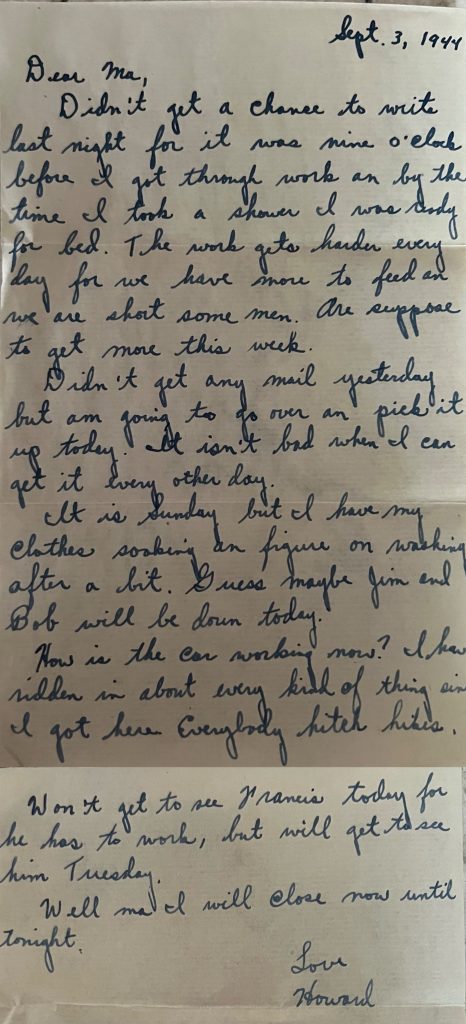 Sept. 3, 1944
Dear Ma,
Didn't get a chance to write
last night for it was nine o'clock
before I got through work an by the
time I took a shower I was ready
for bed. The work gets harder every
day for we have more to feed an
we are short some men. Are suppose
to get more this week.
Didn't get any mail yesterday
but am going to go over an pick it
up today. It isn't bad when I can
get it every other day.
It is Sunday but I have my
clothes soaking an figure on washing
after a bit. Guess maybe Jim and
Bob will be down today.
How is the car working now? I hav
ridden in about every kind of thing sin
I got here. Everybody hitch hikes.
Won't get to see Francis today for
he has to work, but will get to see
him Tuesday.
Well ma I will close now until
tonight.
Love
Howard